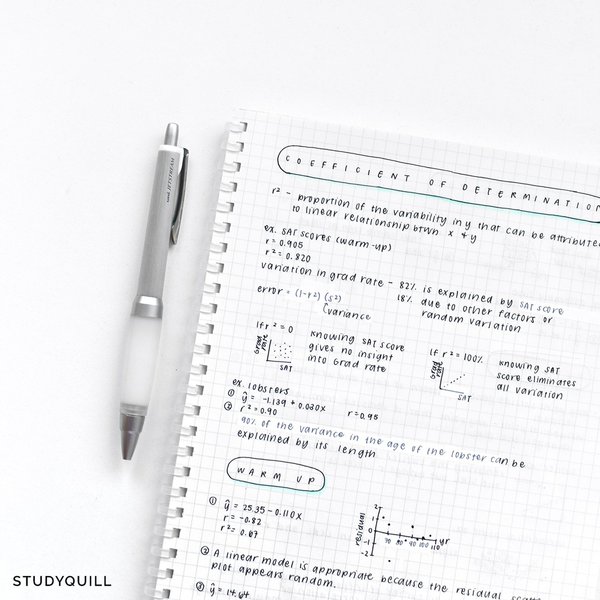 COEFFICIENT OF DETERMINATION
r² - proportion of the variability in y that can be attribute
to linear relationship btwn x & y
ex. SAT scores (warm-up)
r = 0.905
r² = 0.820
variation in grad rate - 82% is explained by SAT score
18% due to other factors or
random variation
error = (1-r²) (s²)
variance
If r² = 0
Grad rate
SAT
knowing SAT score
gives no insight
into grad rate
If r² = 100%
Grad rate
SAT
knowing SAT
score eliminates
all variation
ex. lobsters
① ŷ = -1.139 + 0.030x
② r² = 0.90
r = 0.95
90% of the variance in the age of the lobster can be
explained by its length
WARM UP
① ŷ = 25.35 - 0.110x
r = -0.82
r² = 0.67
residual
2
1
-1
-2
70 80 90 100 110 yr
② A linear model is appropriate because the residual scatt
plot appears random.
③ ŷ = 14.64
STUDYQUILL